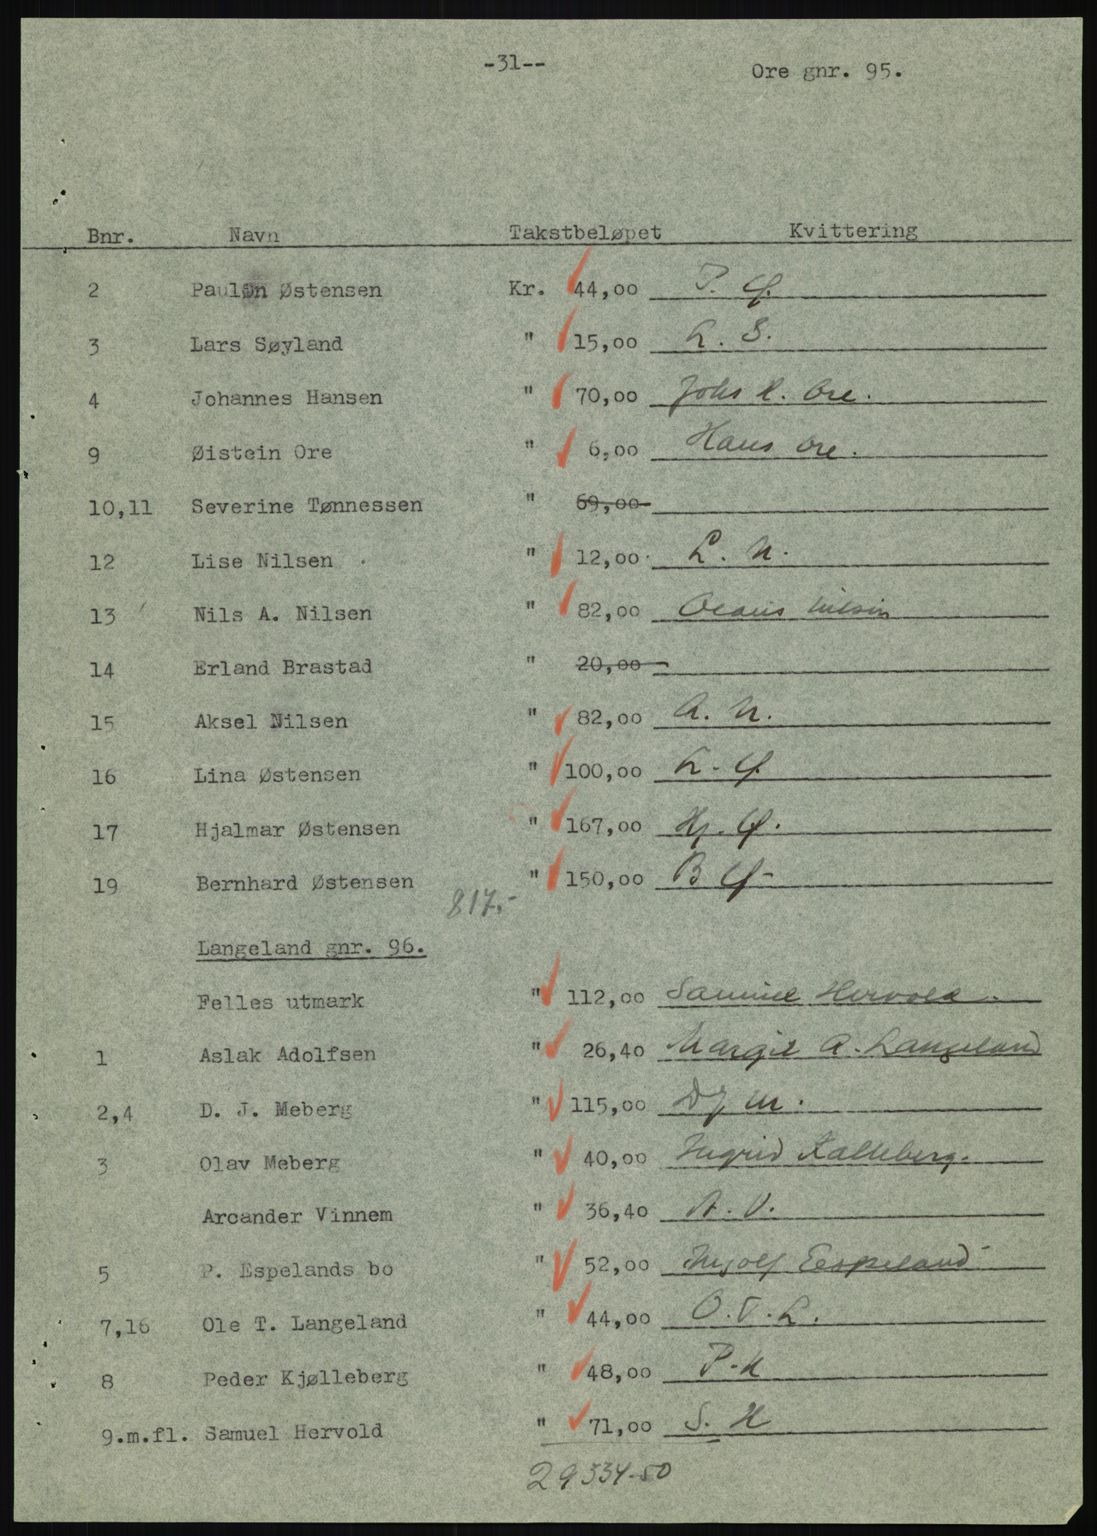 -31--
Ore gnr. 95.
Bnr. Navn Takstbeløpet Kvittering
2 Paul Østensen Kr. 44,00 P. Ø.
3 Lars Søyland " 15,00 L. S.
4 Johannes Hansen " 70,00 Johs H. Ore.
9 Øistein Ore " 6,00 Hans Ore.
10,11 Severine Tønnessen " 69,00
12 Lise Nilsen " 12,00 L. N.
13 Nils A. Nilsen " 82,00 Nilsen
14 Erland Brastad " 20,00
15 Aksel Nilsen " 82,00 A. N.
16 Lina Østensen " 100,00 L. Ø.
17 Hjalmar Østensen " 167,00 Hj. Ø.
19 Bernhard Østensen " 150,00 B Ø-
817,-
Langeland gnr. 96.
Felles utmark " 112,00 Samuel Hervold.
1 Aslak Adolfsen " 26,40 Margit A. Langeland
2,4 D. J. Meberg " 115,00 DJ M.
3 Olav Meberg " 40,00 Ingrid
Arcander Vinnem " 36,40 A. V.
5 P. Espelands bo " 52,00 Ingolf Espeland
7,16 Ole T. Langeland " 44,00 O. T. L.
8 Peder Kjølleberg " 48,00 P. K
9.m.fl. Samuel Hervold " 71,00 S. H
29334-50